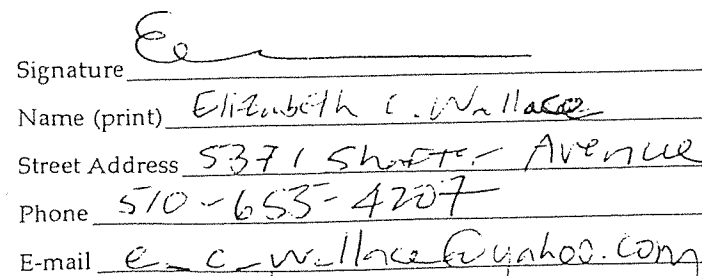 Signature
Name (print) Elizabeth C. Wallace
Street Address 5371 Shafter Avenue
Phone 510-653-4207
E-mail e_c_wallace@yahoo.com